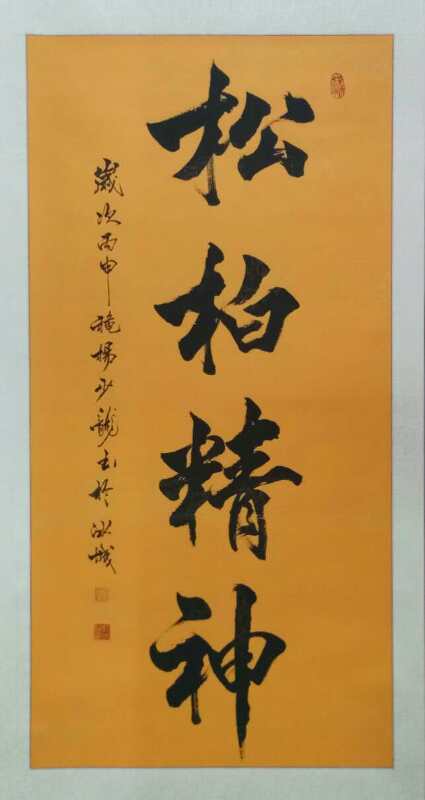 松柏精神
歲次丙申穐楊少龍書於冰城